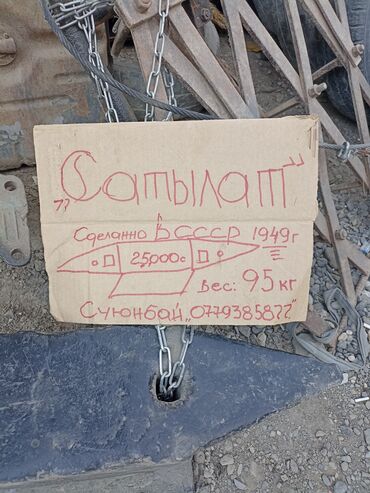 „Сатылат"
Сделанно В СССР 1949г
25000с
Вес: 95 кг
Суюнбай „0779385822"